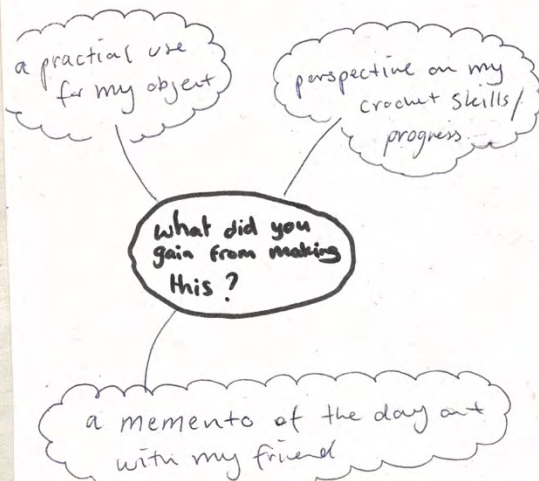 a practial use
for my object
perspective on my
crochet skills/
progress
what did you
gain from making
this?
a memento of the day out
with my friend